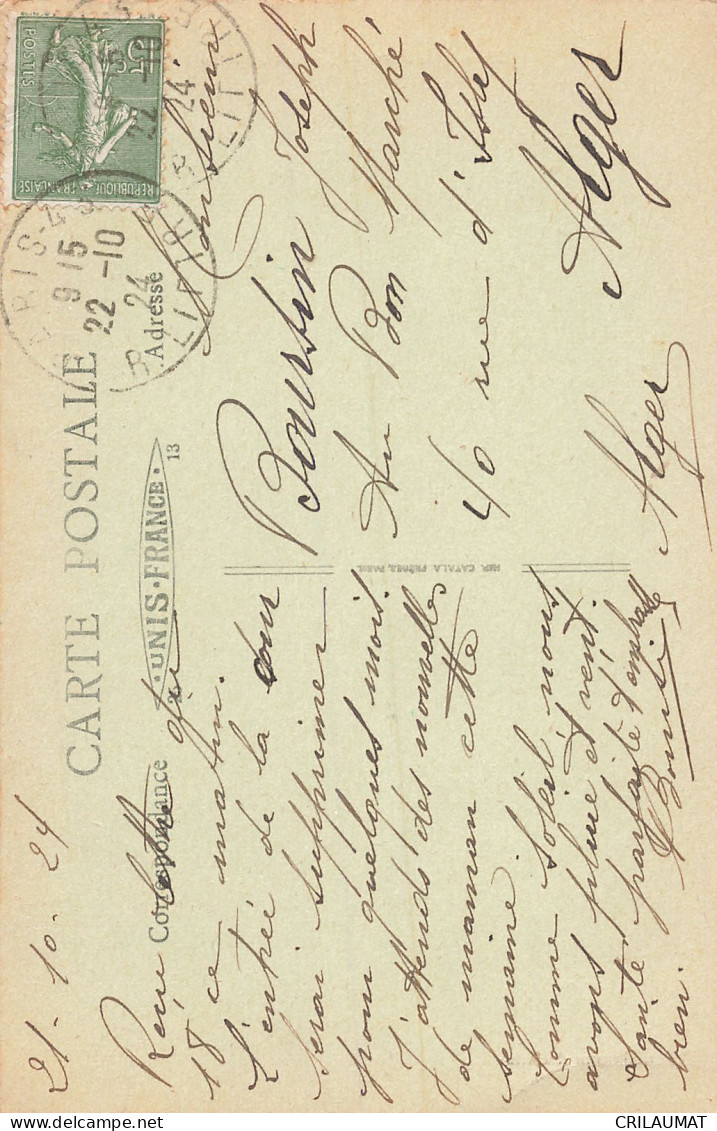 CARTE POSTALE
• UNIS-FRANCE •
13
Correspondance
Adresse
IMP. CATALA FRÈRES, PARIS
15c
POSTES
RÉPUBLIQUE FRANÇAISE
PARIS-43
9 15
22-10
24
R. LITTRÉ
21-10-24
Reçu lettre du
18 ce matin.
L'entrée de la cour
serai supprimer
pour quelques mois.
J'attends des nouvelles
de maman cette
semaine.
Comme soleil nous
avons pluie et vent.
Santé parfaite t'embrasse
bien.
Monsieur
Boursin Joseph
Au Bon Marché
40 rue d'Isly
Alger
Alger
CRILAUMAT